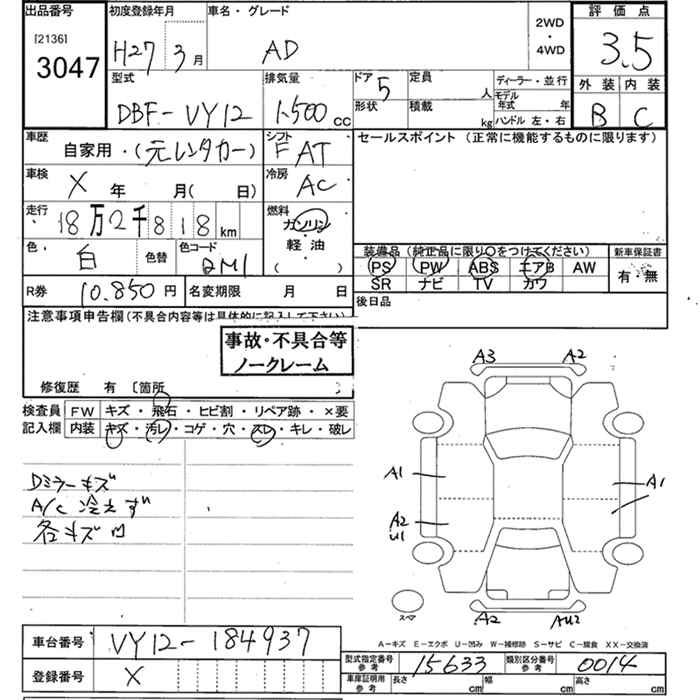 出品番号 初度登録年月 車名・グレード 2WD・4WD 評価点
[2136]
3047
H27 3月 AD 3.5
型式 排気量 ドア 5 定員 人 ディーラー・並行 外装 内装
DBF-VY12 1,500cc 形状 積載 kg モデル年式 年 ハンドル 左・右 B C
車歴 自家用・(元レンタカー) シフト F AT セールスポイント (正常に機能するものに限ります)
車検 X 年 月( 日) 冷房 AC
走行 18万2千818km 燃料 ガソリン・軽油・( )
色 白 色替 色コード QM1 装備品 (純正品に限り○をつけてください) 新車保証書
PS PW ABS エアB AW 有・無
SR ナビ TV カワ
R券 10,850円 名変期限 月 日 後日品
注意事項申告欄(不具合内容等は具体的に記入して下さい)
事故・不具合等
ノークレーム
修復歴 有 〔箇所
検査員 FW キズ・飛石・ヒビ割・リペア跡・×要
記入欄 内装 キズ・汚レ・コゲ・穴・スレ・キレ・破レ
Dミラーキズ
A/C 冷えず
各キズ凹
A3 A2
A1 A1
A2
U1
スペア A2 AU2
A-キズ E-エクボ U-凹み W-補修跡 S-サビ C-腐食 XX-交換済
車台番号 VY12-184937
型式指定番号 参考 15633 類別区分番号 参考 0014
登録番号 X
車庫証明用 参考 長さ cm 幅 cm 高さ cm